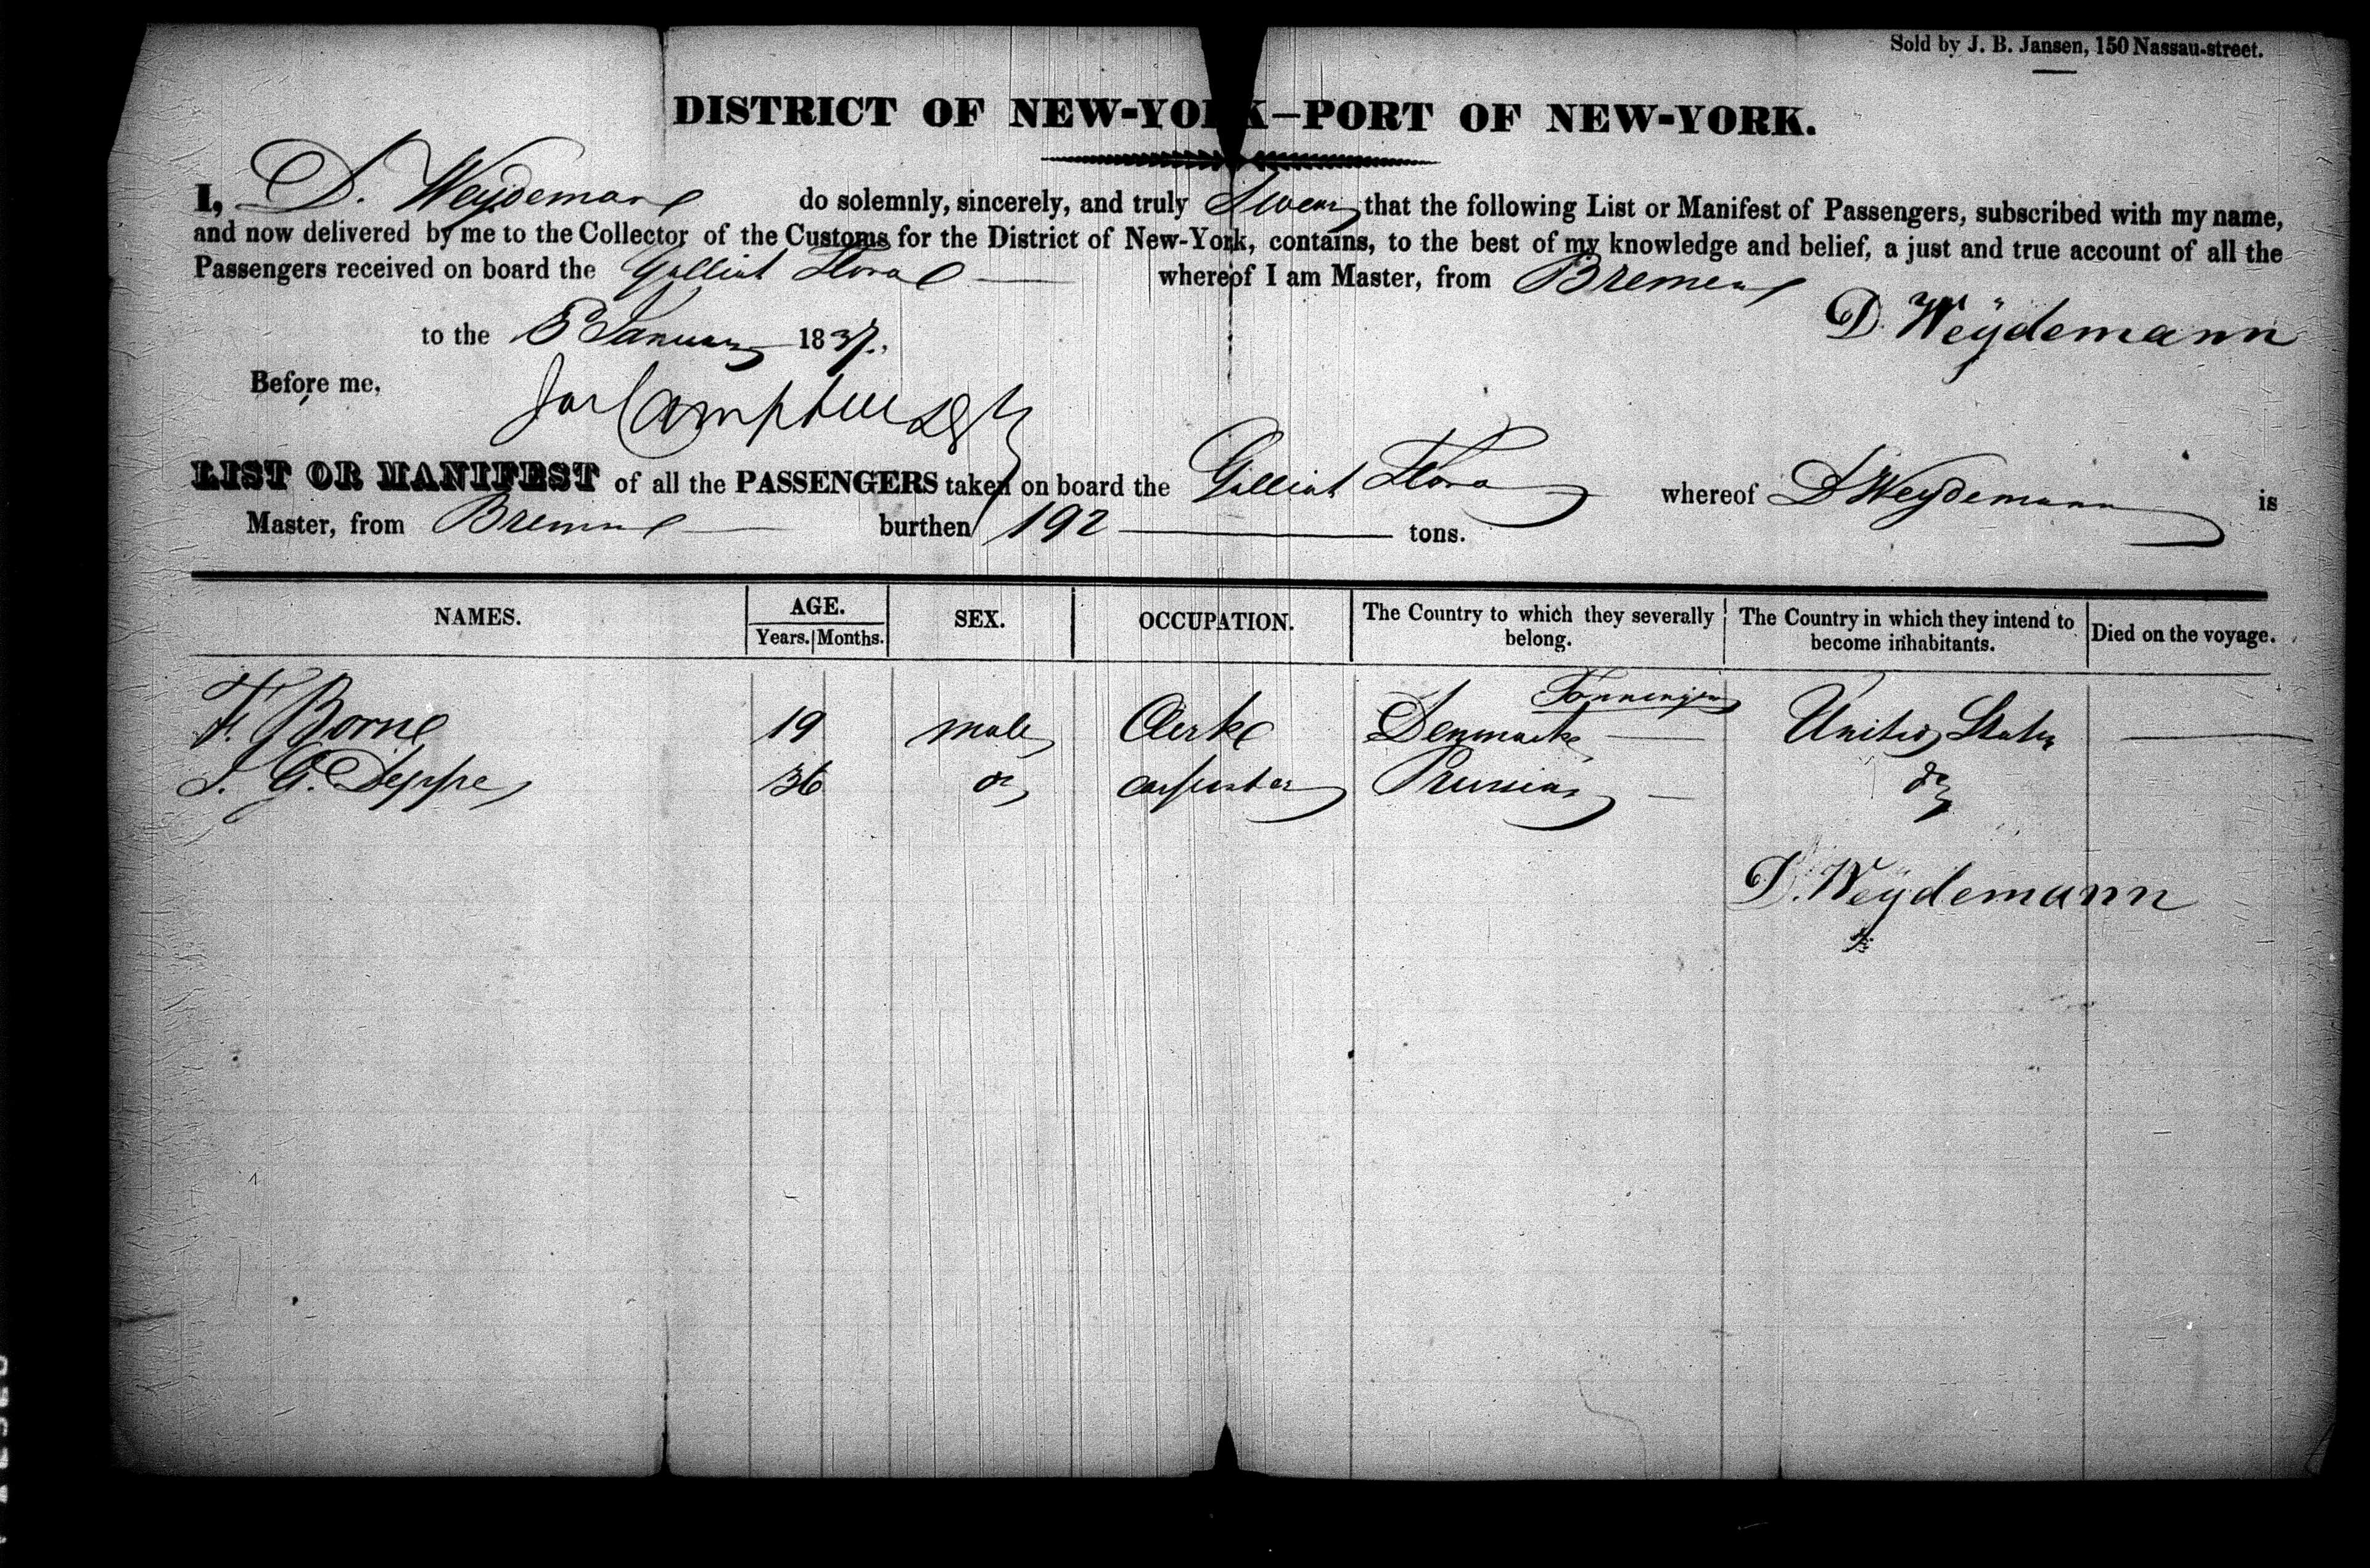 Sold by J. B. Jansen, 150 Nassau-street.
DISTRICT OF NEW-YORK—PORT OF NEW-YORK.
I, D. Weydemann do solemnly, sincerely, and truly Swear that the following List or Manifest of Passengers, subscribed with my name,
and now delivered by me to the Collector of the Customs for the District of New-York, contains, to the best of my knowledge and belief, a just and true account of all the
Passengers received on board the Galliot Flora whereof I am Master, from Bremen
D. Weÿdemann
to the January 1837.
Before me,
Campbell
LIST OR MANIFEST of all the PASSENGERS taken on board the Galliot Flora whereof D Weydemann is
Master, from Bremen burthen 192 tons.
NAMES. AGE. SEX. OCCUPATION. The Country to which they severally belong. The Country in which they intend to become inhabitants. Died on the voyage.
Years. Months.
Tonningen
F. Borne 19 male Clerke Denmarke United States
J. G. Deppe 36 do carpenter Prussia do
D. Weÿdemann